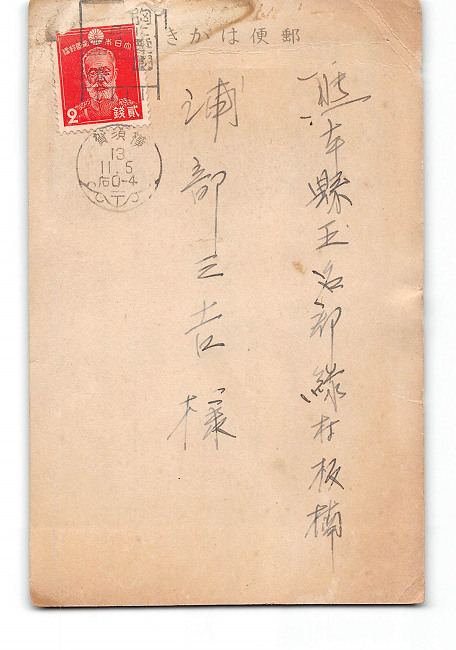 郵便はがき
大日本帝國郵便
2
貳錢
橫須賀
13
11.5
后0-4
熊本縣玉名郡緑村板楠
浦部三吉様